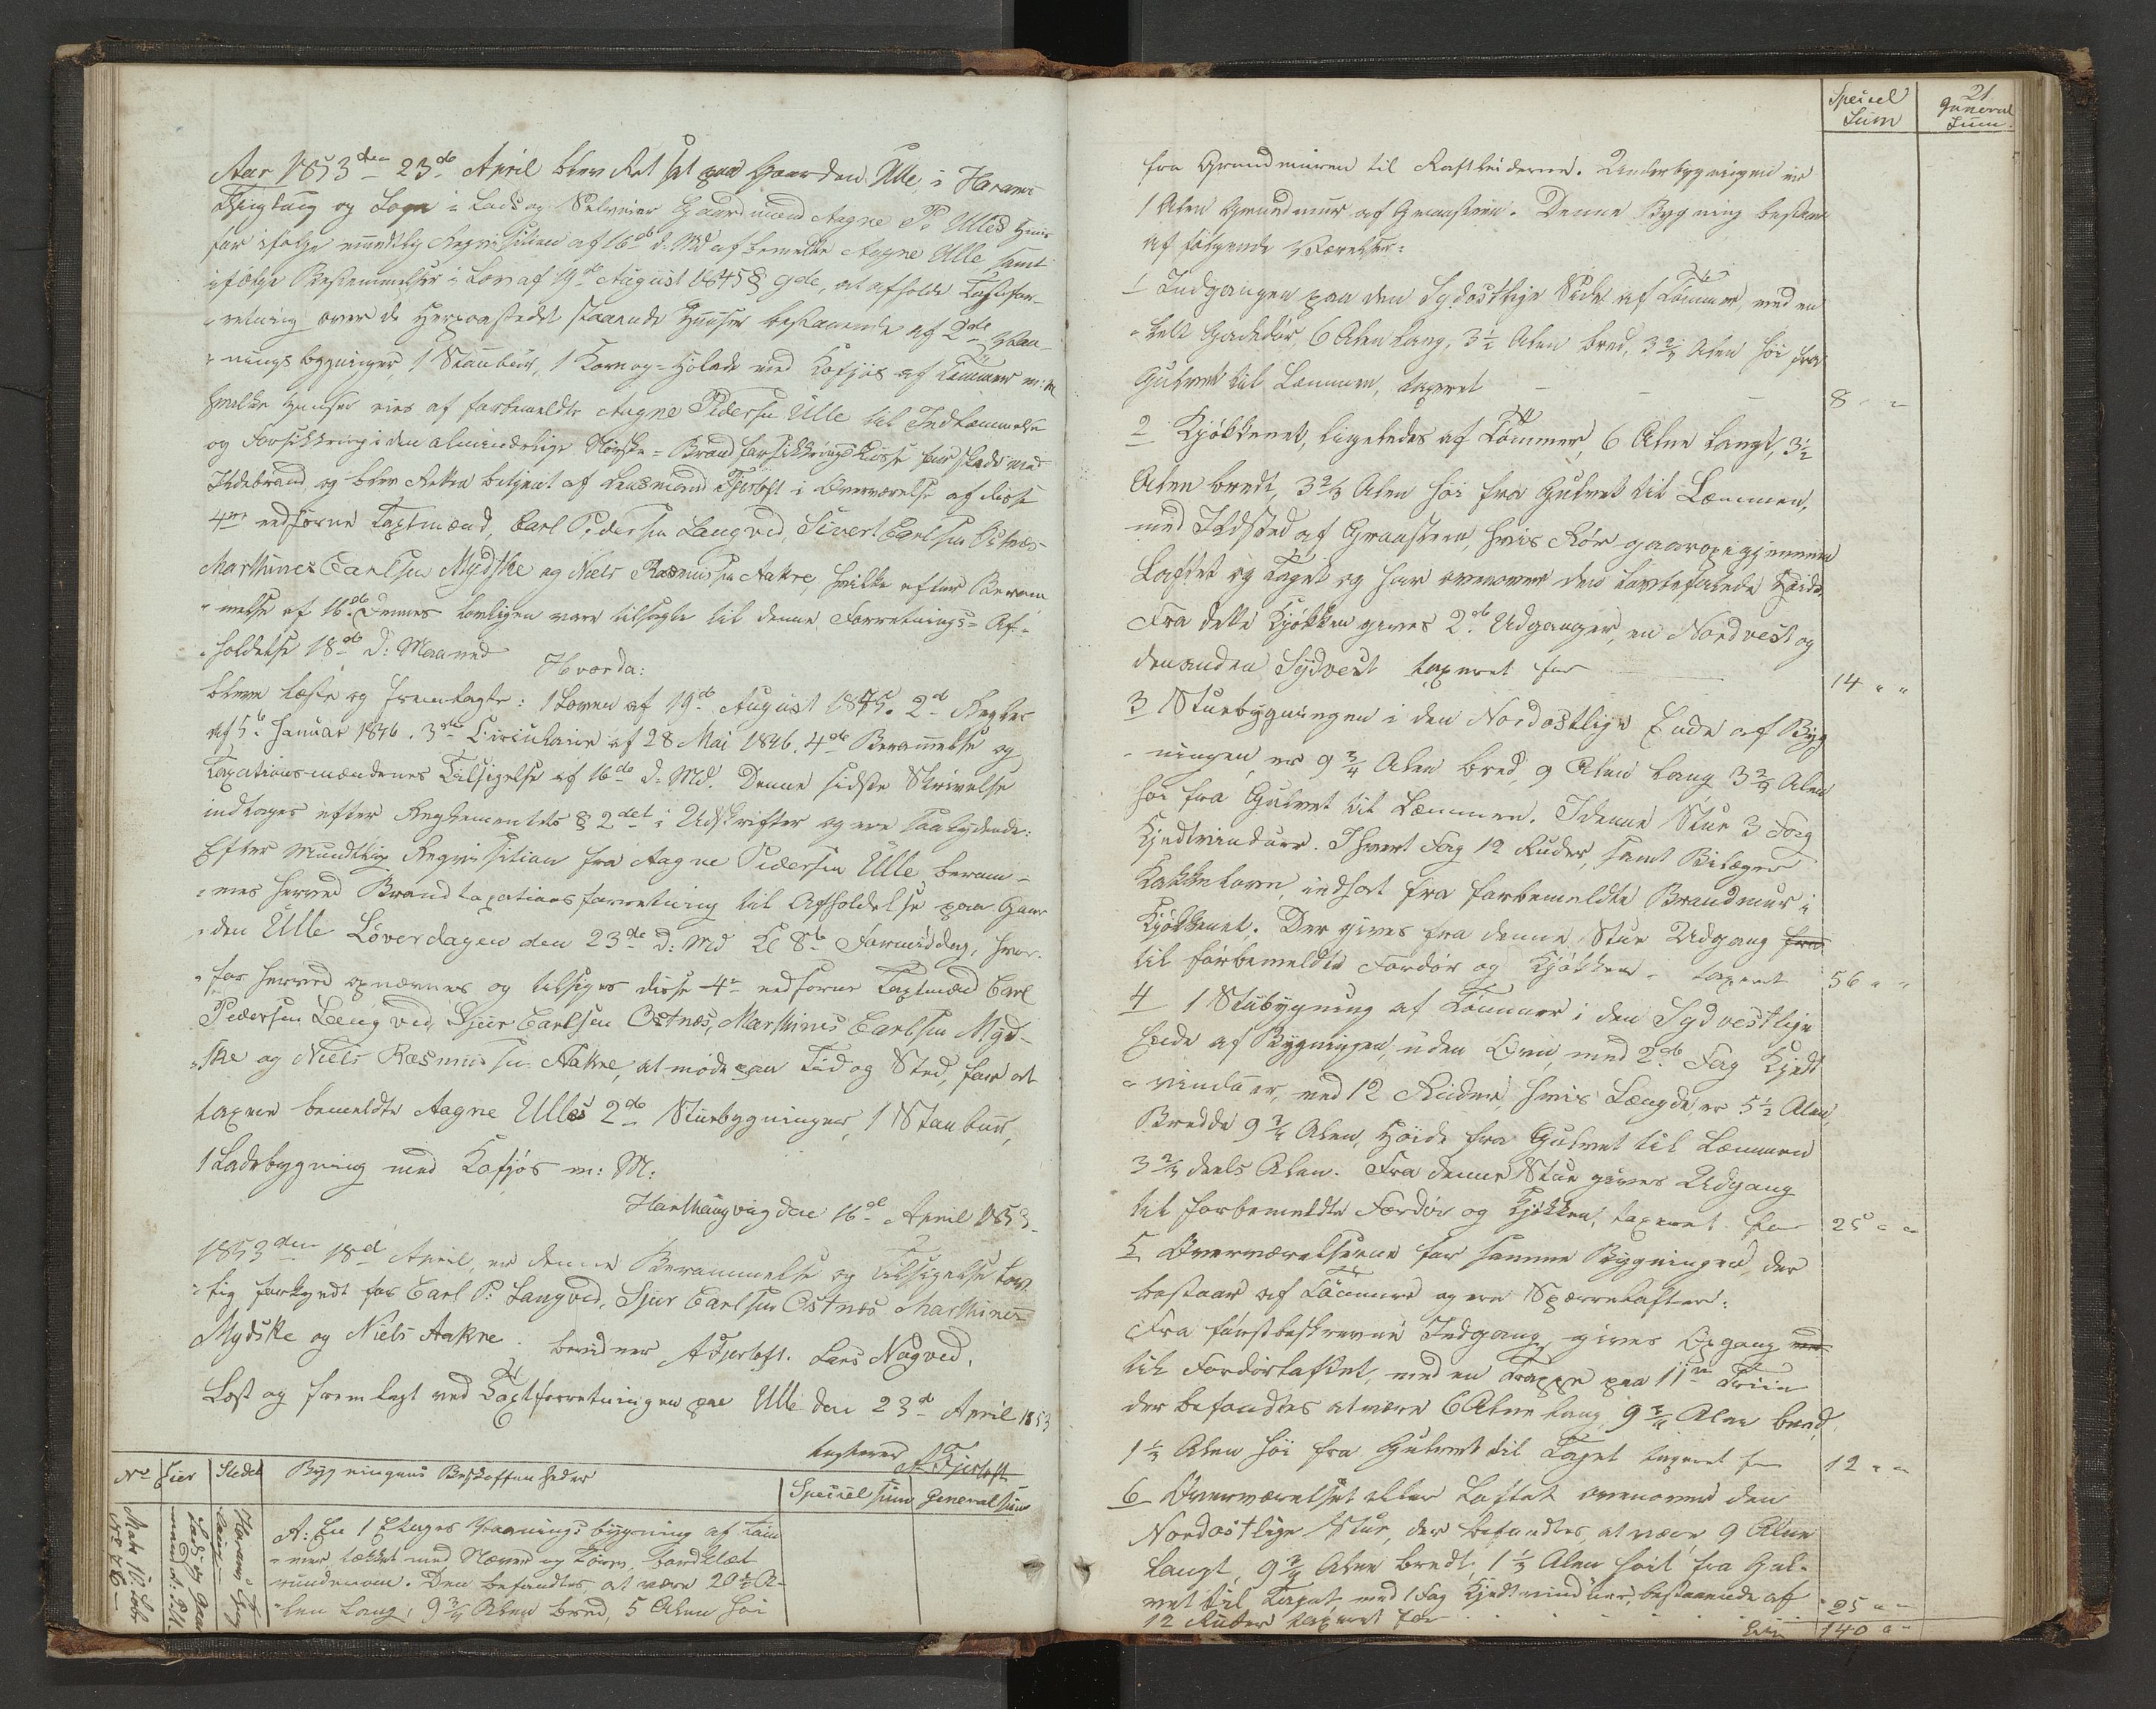 Aar 1853 den 23de April blev Ret sat paa Gaarden Ulle, i Harams
Thinglaug og Sogn i Lads og Selveier Gaardmand Aagne P. Ulles Huus
for ifølge mundtlig Reqvisition af 16de d: Md af bemeldte Aagne Ulle samt
ifølge Bestemmelser i Lov af 19de August 1845 § 9de, at afholde Taxtfor-
retning over de Herpaastedet staaende Huuser bestaaende af 2de Vaa-
ningsbygninger, 1 Stanbuur, 1 Korn og Høelade med Kofjøs af Tømmer m: m
hvilke Huuser eies af forbemeldte Aagne Pedersen Ulle til Indlemmelse
og Forsikkring i den almindelige Norske Brandforsikkrings Kasse for skade ved
Ildebrand og blev Retten betjent af Lensmand Fjertoft i Overværelse af disse
4re edsorne Taxtmænd, Carl Pedersen Langved, Sivert Carlsen Ostnæs
Marthines Carlsen Mydske og Niels Rasmussen Aakre, hvilke efter Beram
melse af 16de Dennes lovligen vare tilsagte til denne Forretnings Af-
holdelse 18de d: Maaned
Hvorda:
bleve læste og fremlagte: 1 Loven af 19de August 1845. 2de Regler
af 5te Januar 1846. 3die Circulaire af 28 Mai 1846. 4de Berammelse og
Taxationsmændenes Tilsigelse af 16de d: Md. Denne sidste Skrivelse
indtages efter Reglementets § 2det i Udskrifter og ere saalydende:
Efter Mundtlig Reqvisition fra Aagne Pedersen Ulle beram-
mes herved Brandtaxationsforretning til Afholdelse paa Gaar
den Ulle Løverdagen den 23de d: Md Kl 8te Formiddag, hvor-
for herved opnævnes og tilsiges disse 4re edsorne Taxtmænd Carl
Pedersen Langved, Sjur Carlsen Ostnæs, Marthinus Carlsen Myd-
ske og Niels Rasmussen Aakre, at møde paa Tid og Sted, for at
taxere bemeldte Aagne Ulles 2de Stuebygninger, 1 Stanbuur,
1 Ladebygning med Kofjøs m: M:
Harthaugvig den 16de April 1853.
1853 den 18de April, er denne Berammelse og Tilsigelse Lov-
lig forkyndt for Carl P. Langved, Sjur Carlsen Ostnæs Marthines
Mydske og Niels Aakre. bevidner A Fjertoft. Lars Nogved.
Læst og fremlagt ved Taxtforretningen paa Ulle den 23de April 1853
A Fjertoft
No Eier Stedet Bygningens Beskaffenheder Speciel sum General sum
Matr 10. Løbe No 76
Lads og Gaar mand A: P. U.
Harams Thing laug
A: En 1 Etages Vaaningsbygning af Tøm
mer, tækket med Næver og Torv, bordklæt
rundenom. Den befandtes at være 20½ A-
len Lang, 9¾ Alen bred, 5 Alen høi
21
Speciel Sum General Sum.
fra Grundmuren til Raftleiderne. Underbygningen er
1 Alen Grundmur af Graasteen. Denne Bygning bestaar
af følgende Værelser:
1 Indgangen paa den Sydostlige Side af Tømmer, med en
kelt Gadedør, 6 Alen lang, 3½ Alen bred, 3¾ Alen høi fra
Gulvet til Lemmen, taxeret - - - 8 " "
2 Kjøkkenet, ligeledes af Tømmer, 6 Alen langt, 3½
Alen bredt, 3¾ Alen høi fra Gulvet til Lemmen,
med Ildsted af Graasteen, hvis Rør gaar op igjennem
Loftet og Taget og har ovenover den lovbefalede Høide.
Fra dette Kjøkken gives 2de Udganger, en Nordvest og
den anden Sydvest taxeret for 14 " "
3 Stuebygningen i den Nordostlige Ende af Byg
ningen, er 9¾ Alen bred, 9 Alen lang 3¾ Alen
høi fra Gulvet til Lemmen. I denne Stue 3 Fag
Kjedtvinduer. I hvert Fag 12 Ruder, samt Bilægger
Kakkelovn, indsat fra forbemeldte Brandmur i
Kjøkkenet. Der gives fra denne Stue Udgang fra
til forbemeldte Fordør og Kjøkken - taxeret 56 " "
4 1 Stubygning af Tømmer i den Sydvestlige
Ende af Bygningen, uden Ovn, med 2de Fag Kjedt
vinduer, med 12 Ruder, hvis Længde er 5½ Alen,
Bredde 9¾ Alen, Høide fra Gulvet til Lemmen
3¾ deels Alen. Fra denne Stue gives Udgang
til forbemeldte Fordør og Kjøkken, taxeret for 25 " "
5 Overværelserne for samme Bygningen, der
bestaar af Tømmer og ere Sperreloftee:
Fra førstbeskrevne Indgang, gives Opgang
til Fordørloftet, med en Trappe paa 11 Triin
der befandtes at være 6 Alen lang, 9¾ Alen bred
1½ Alen høi fra Gulvet til Taget taxeret for 12 " "
6 Overværelset eller Loftet ovenover den
Nordostlige Stue, der befandtes at være, 9 Alen
langt, 9¾ Alen bredt, 1½ Alen høit fra Gul-
vet til Taget, med 1 Fag Kjedtvinduer, bestaaende af
12 Ruder taxeret for 25 " "
140 " "